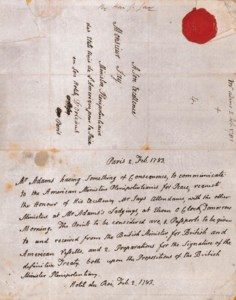 A Son Excellence
Monsieur Jay
Ministre Plenipotentiaire
des Etats Unis de l'Amerique pour la Paix
en son Hotel, D'Orleans
Paris
Paris 2 Feb. 1783.
Mr Adams having something of Consequence, to communicate
to the American Ministers Plenipotentiaries for Peace, requests
the Honour of His Excellency Mr Jays Attendance, with the other
Ministers at Mr Adams's Lodgings, at Eleven O Clock, Tomorrow
Morning. The Points to be considered are 1 Passports to be given
to and received from the British Minister for British and
American Vessells, and 2 Preparations for the Signature of the
definitive Treaty both upon the Propositions of the British
Minister Plenipotentiary.
Hotel du Roi, Feb. 2, 1783.